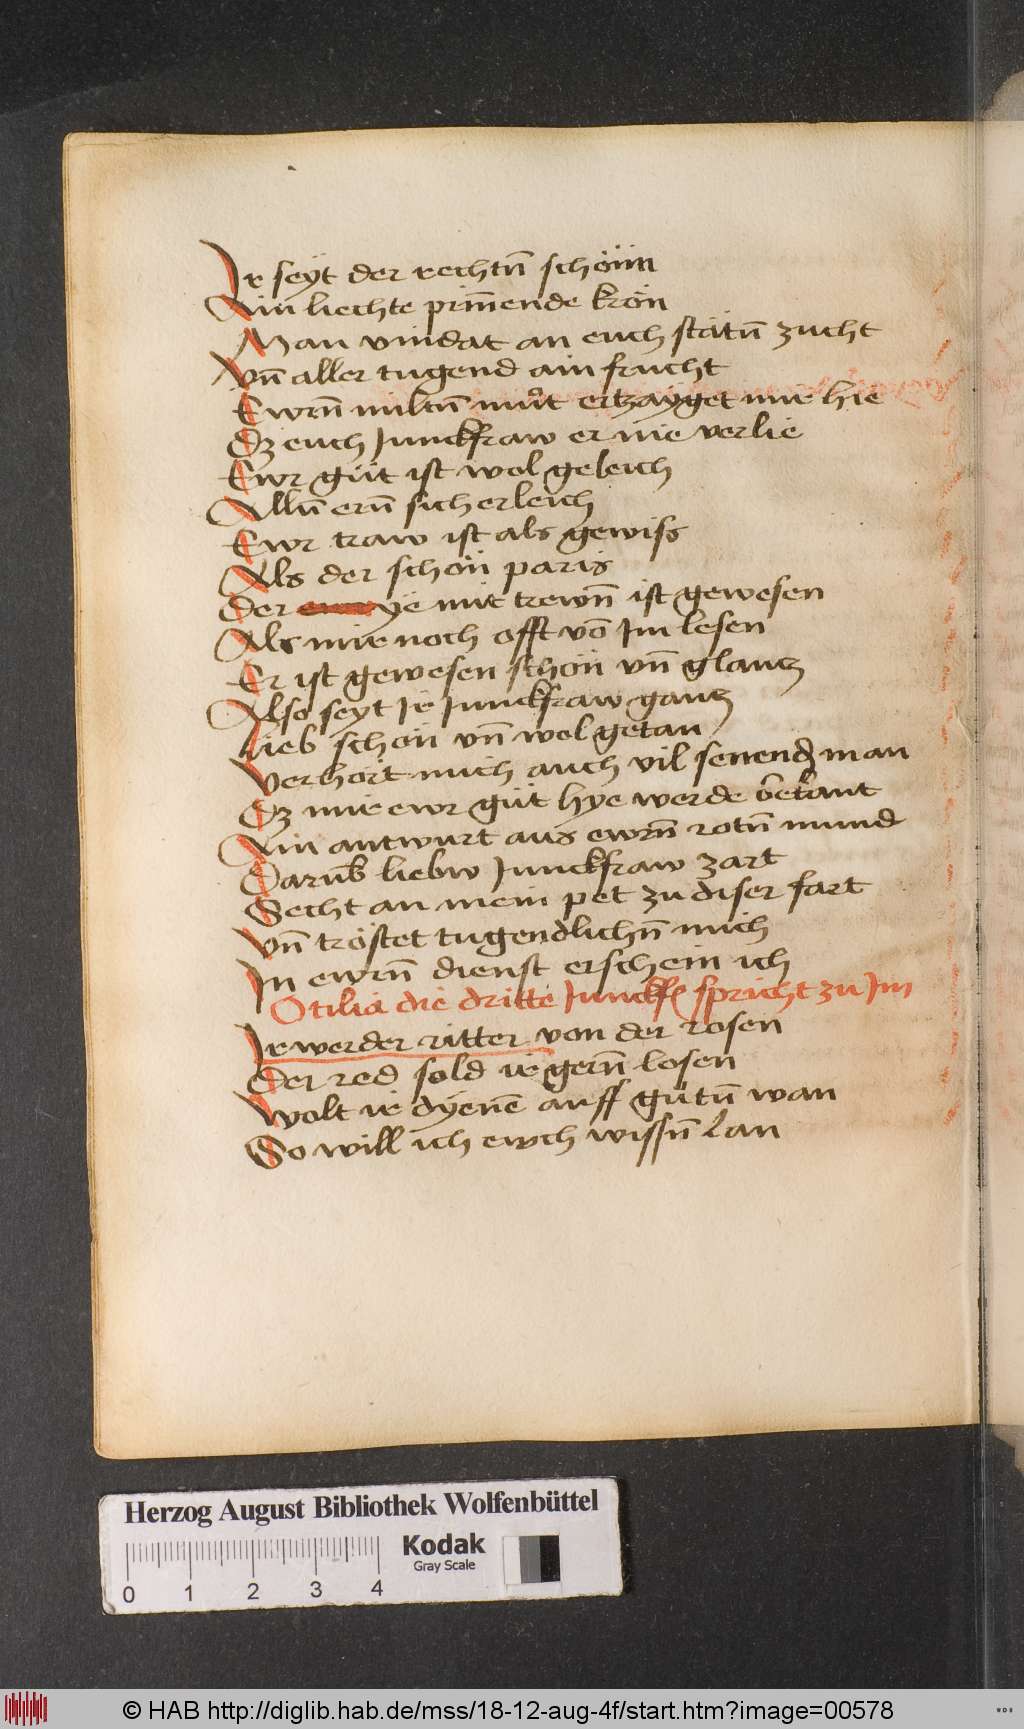 Ir seÿt der rechtn̄ schöim
Ain liechte prin̄ende krön
Man vindat an euch stätn̄ zucht
Vn̄ aller tugend ain frucht
Ewrn̄ miltn̄ mu᷑t ertzayget mir hie
Dz euch Junckfraw er nie verlie
Ewr güt ist wol geleich
Alln̄ ern̄ sicherleich
Ewr traw ist als gewiss
Als der schön paris
Der ye mit trewn̄ ist gewesen
Als mir noch offt vō Im lesen
Er ist gewesen schön vn̄ glantz
Also seyt Ir Junckfraw gantz
Lieb schön vn̄ wol getan
Verhört mich auch vil senend man
Dz mir ewr güt hye werde bekant
Ain antwurt aus ewrn̄ rotn̄ mund
Darūb liebw Junckfraw zart
Secht an mein pet zu diser fart
Vn̄ tröstet tugendlichn̄ mich
In ewrn̄ dienst erschein ich
Otilia die dritte Junckf spricht zu Im
Ir werder ritter von der rosen
Der red sold ir gern̄ losen
Wolt ir dyenē auff gütn̄ wan
So will ich ewch wissn̄ lan
Herzog August Bibliothek Wolfenbüttel
Kodak
Gray Scale
0 1 2 3 4
© HAB http://diglib.hab.de/mss/18-12-aug-4f/start.htm?image=00578